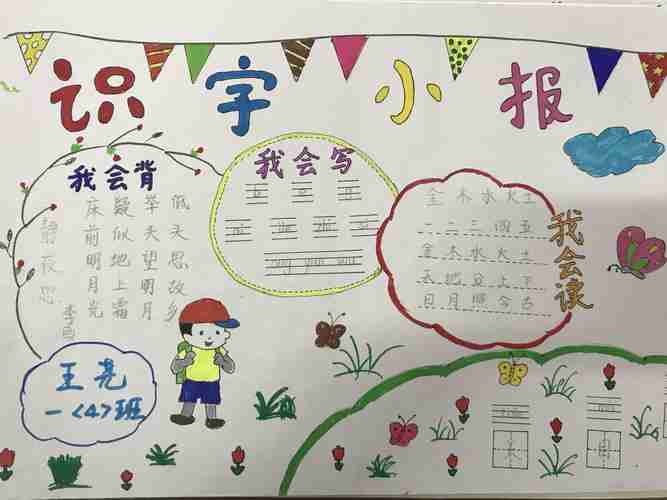 识字小报
我会背
静夜思
李白
床前明月光
疑似地上霜
举头望明月
低头思故乡
我会写
我会读
金木水火土
一二三四五
金木水火土
天地分上下
日月照今古
王亮
一<4>班